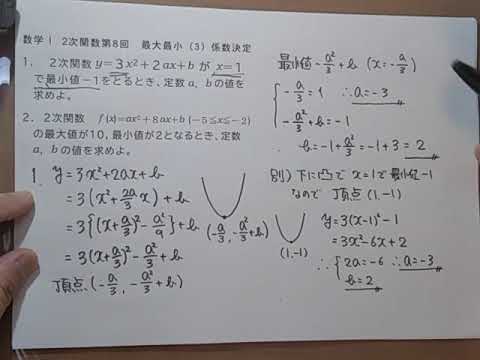 数学Ⅰ 2次関数第8回 最大最小（3）係数決定
1. 2次関数 y=3x²+2ax+b が x=1
で最小値−1をとるとき，定数 a，b の値を
求めよ。
2. 2次関数 f(x)=ax²+8ax+b (−5≦x≦−2)
の最大値が10，最小値が2となるとき，定数
a，b の値を求めよ。
1. y=3x²+2ax+b
=3(x²+2a/3 x)+b
=3{(x+a/3)²−a²/9}+b
=3(x+a/3)²−a²/3+b
頂点(−a/3, −a²/3+b)
(−a/3, −a²/3+b)
最小値−a²/3+b (x=−a/3)
{−a/3=1 ∴a=−3
−a²/3+b=−1
∴b=−1+a²/3=−1+3=2
別) 下に凸で x=1で最小値−1
なので 頂点(1,−1)
(1,−1)
y=3(x−1)²−1
=3x²−6x+2
∴{2a=−6 ∴a=−3
b=2